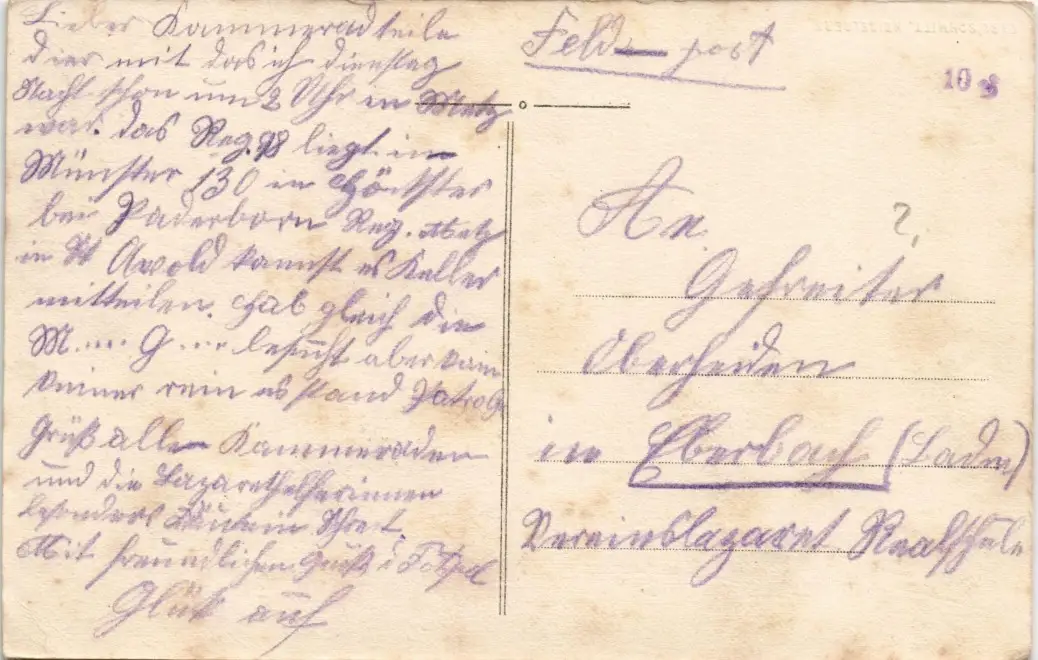 Lieber Kammerad teile
dier mit das ich dienstag
Nacht schon um 2 Uhr in Metz
war. das Reg. 98 liegt in
Münster 130 in Höchster
bei Paderborn Reg. Metz
in St Avold kannst es Keller
mitteilen. Hab gleich die
M.... G.... besucht aber kam
keiner rein es stand
Grüß alle Kammeraden
und die Lazarethelferinnen
besonders
Mit freundlichen Gruß
Glük auf
Feld-post
10
An
?
Gefreiter
Oberheiden
in Eberbach (Baden)
Vereinslazaret Realschule